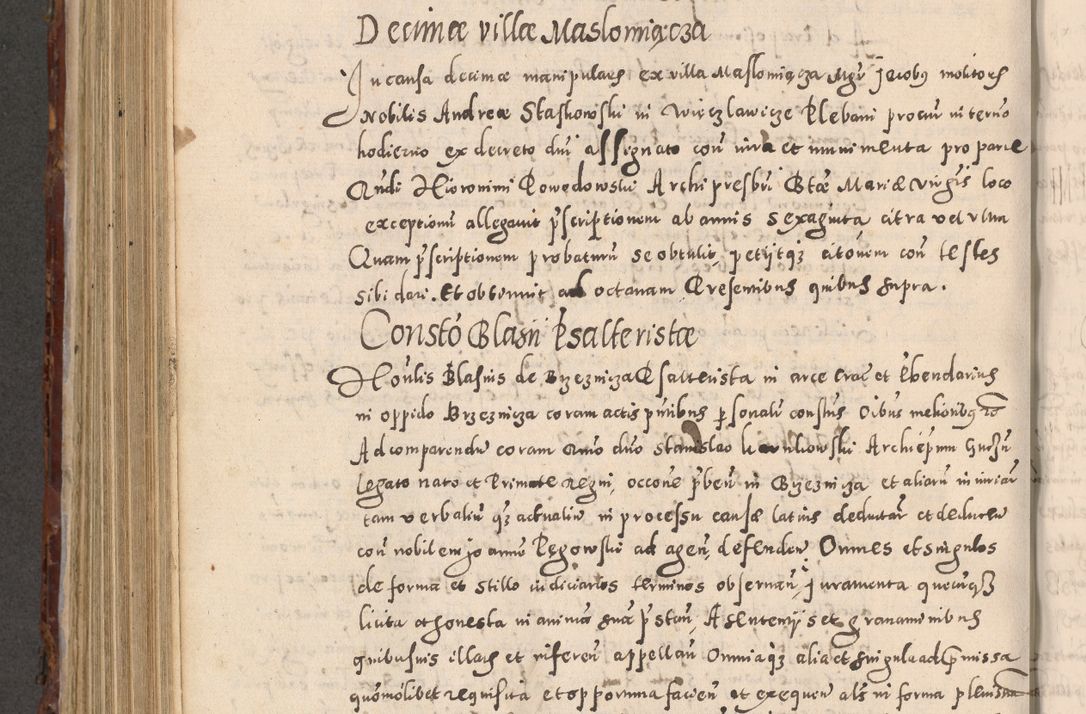 Decimæ villæ Maslomiącza
In causa decimæ manipularis ex villa Maslomiącza Mgri Jacobi molitoris
Nobilis Andreæ Staskowski in Więczlawicze Plebani procur in termino
hodierno ex decreto dni assignato con iura et munimenta pro parte
Rndi Hieronimi Powędowski Archipresbri Btæ Mariæ Virgis loco
exceptioni allegavit pscriptionem ab annis sexaginta citra vel ultra
Quam pscriptionem probaturū se obtulit, petijtqz citōnem con testes
sibi dari. Et obtinuit ad octavam Presentibus quibus supra.
Constō Blasii Psalteristæ
Honlis Blasius de Brzeznicza Psalterista in arce Crac et Pbendarius
in oppido Brzeznicza coram actis pntibus psonalr constus Oibus melioribus
Ad comparendū coram Rmo dno Stanislao Archiepum Gnesn
Legato nato et Primate regni, occone pbens in Brzeznicza et aliarū iniuriarū
tam verbaliū qz actualiū in processu causæ latius deductarū et deducen
con nobilem Joannē Pęgowski ad agen, defenden Omnes et singulos
de forma et stillo iudiciarios terminos observan, Juramenta quecunqz
licita et honesta in animā suā pstan, A sententijs et gravaminibus
quibusuis illatis et inferen appellan Omniaqz alia et singula ad pmissa
quōmōlibet requisita et opportuna facien et exequen als in forma pleniss